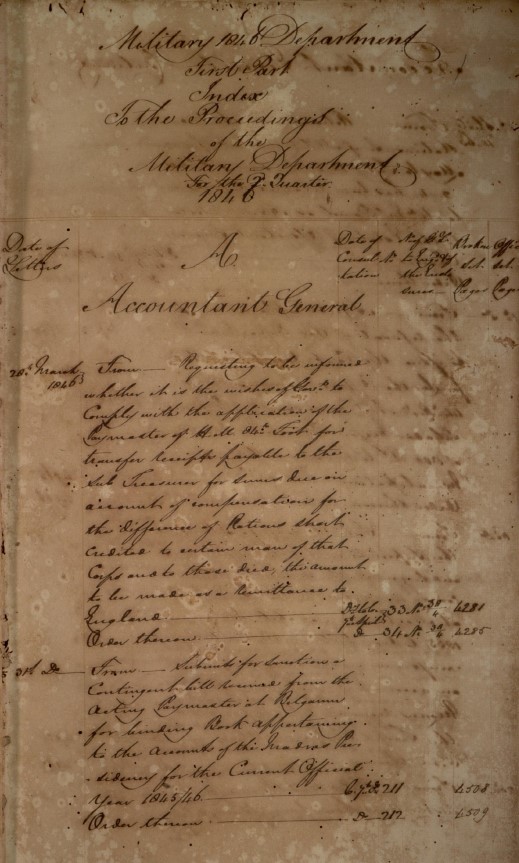 Military 1846 Department
First Part
Index
To the Proceedings
of the
Military Department
For the 2 Quarter
1846
Date of Letters
A
Date of Consultation
Accountant General
28th March 1846
From — Requesting to be informed
whether it is the wishes of Govt. to
Comply with the application of the
Paymaster of H.M. 94th Foot for
transfer receipts payable to the
Sub Treasurer for sums due on
account of compensation for
the difference of Rations short
credited to certain men of that
Corps and to those died, the amount
to be made as a remittance to
England 7th April 33 4281
Order thereon 34 4285
31st Do
From — Submits for sanction a
Contingent bill received from the
Acting Paymaster at Belgaum
for binding Book appertaining
to the Accounts of the Madras Pre
sidency for the Current Official
Year 1845/46 211 4508
Order thereon 212 4509